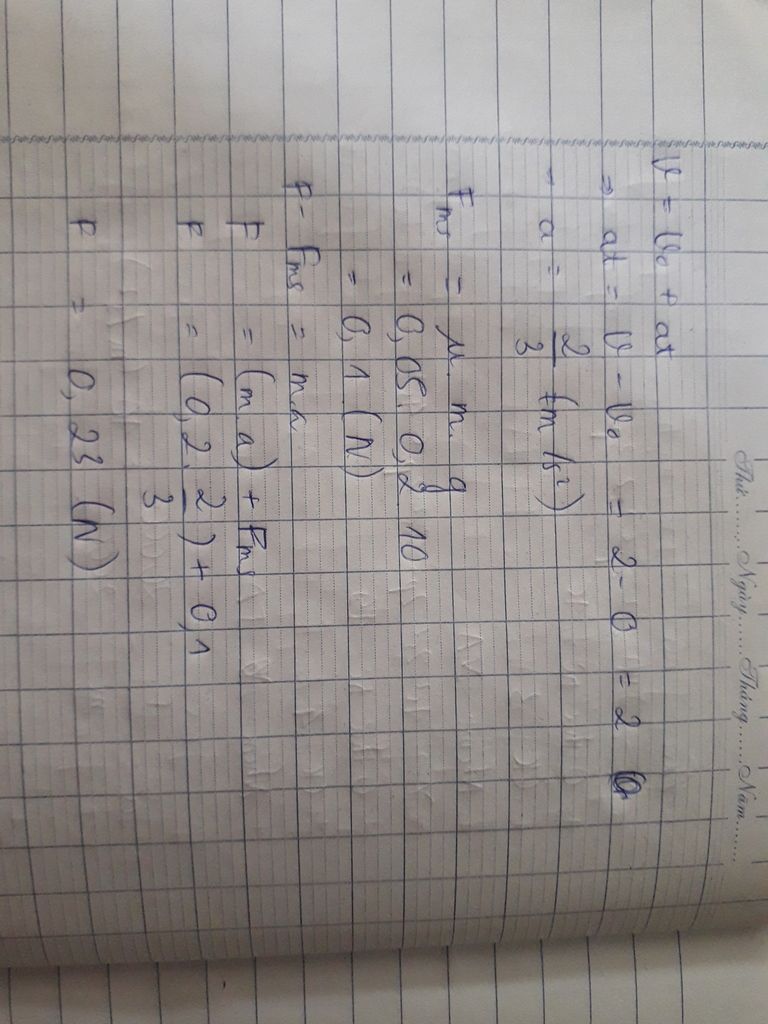 Thứ........Ngày.......Tháng.......Năm.......
V = V₀ + at
⇒ at = V - V₀ = 2 - 0 = 2
- a = 2/3 (m/s²)
Fms = μ. m. g
= 0,05. 0,2 10
= 0,1 (N)
F - Fms = ma
F = (m a) + Fms
F = (0,2. 2/3) + 0,1
F = 0,23 (N)